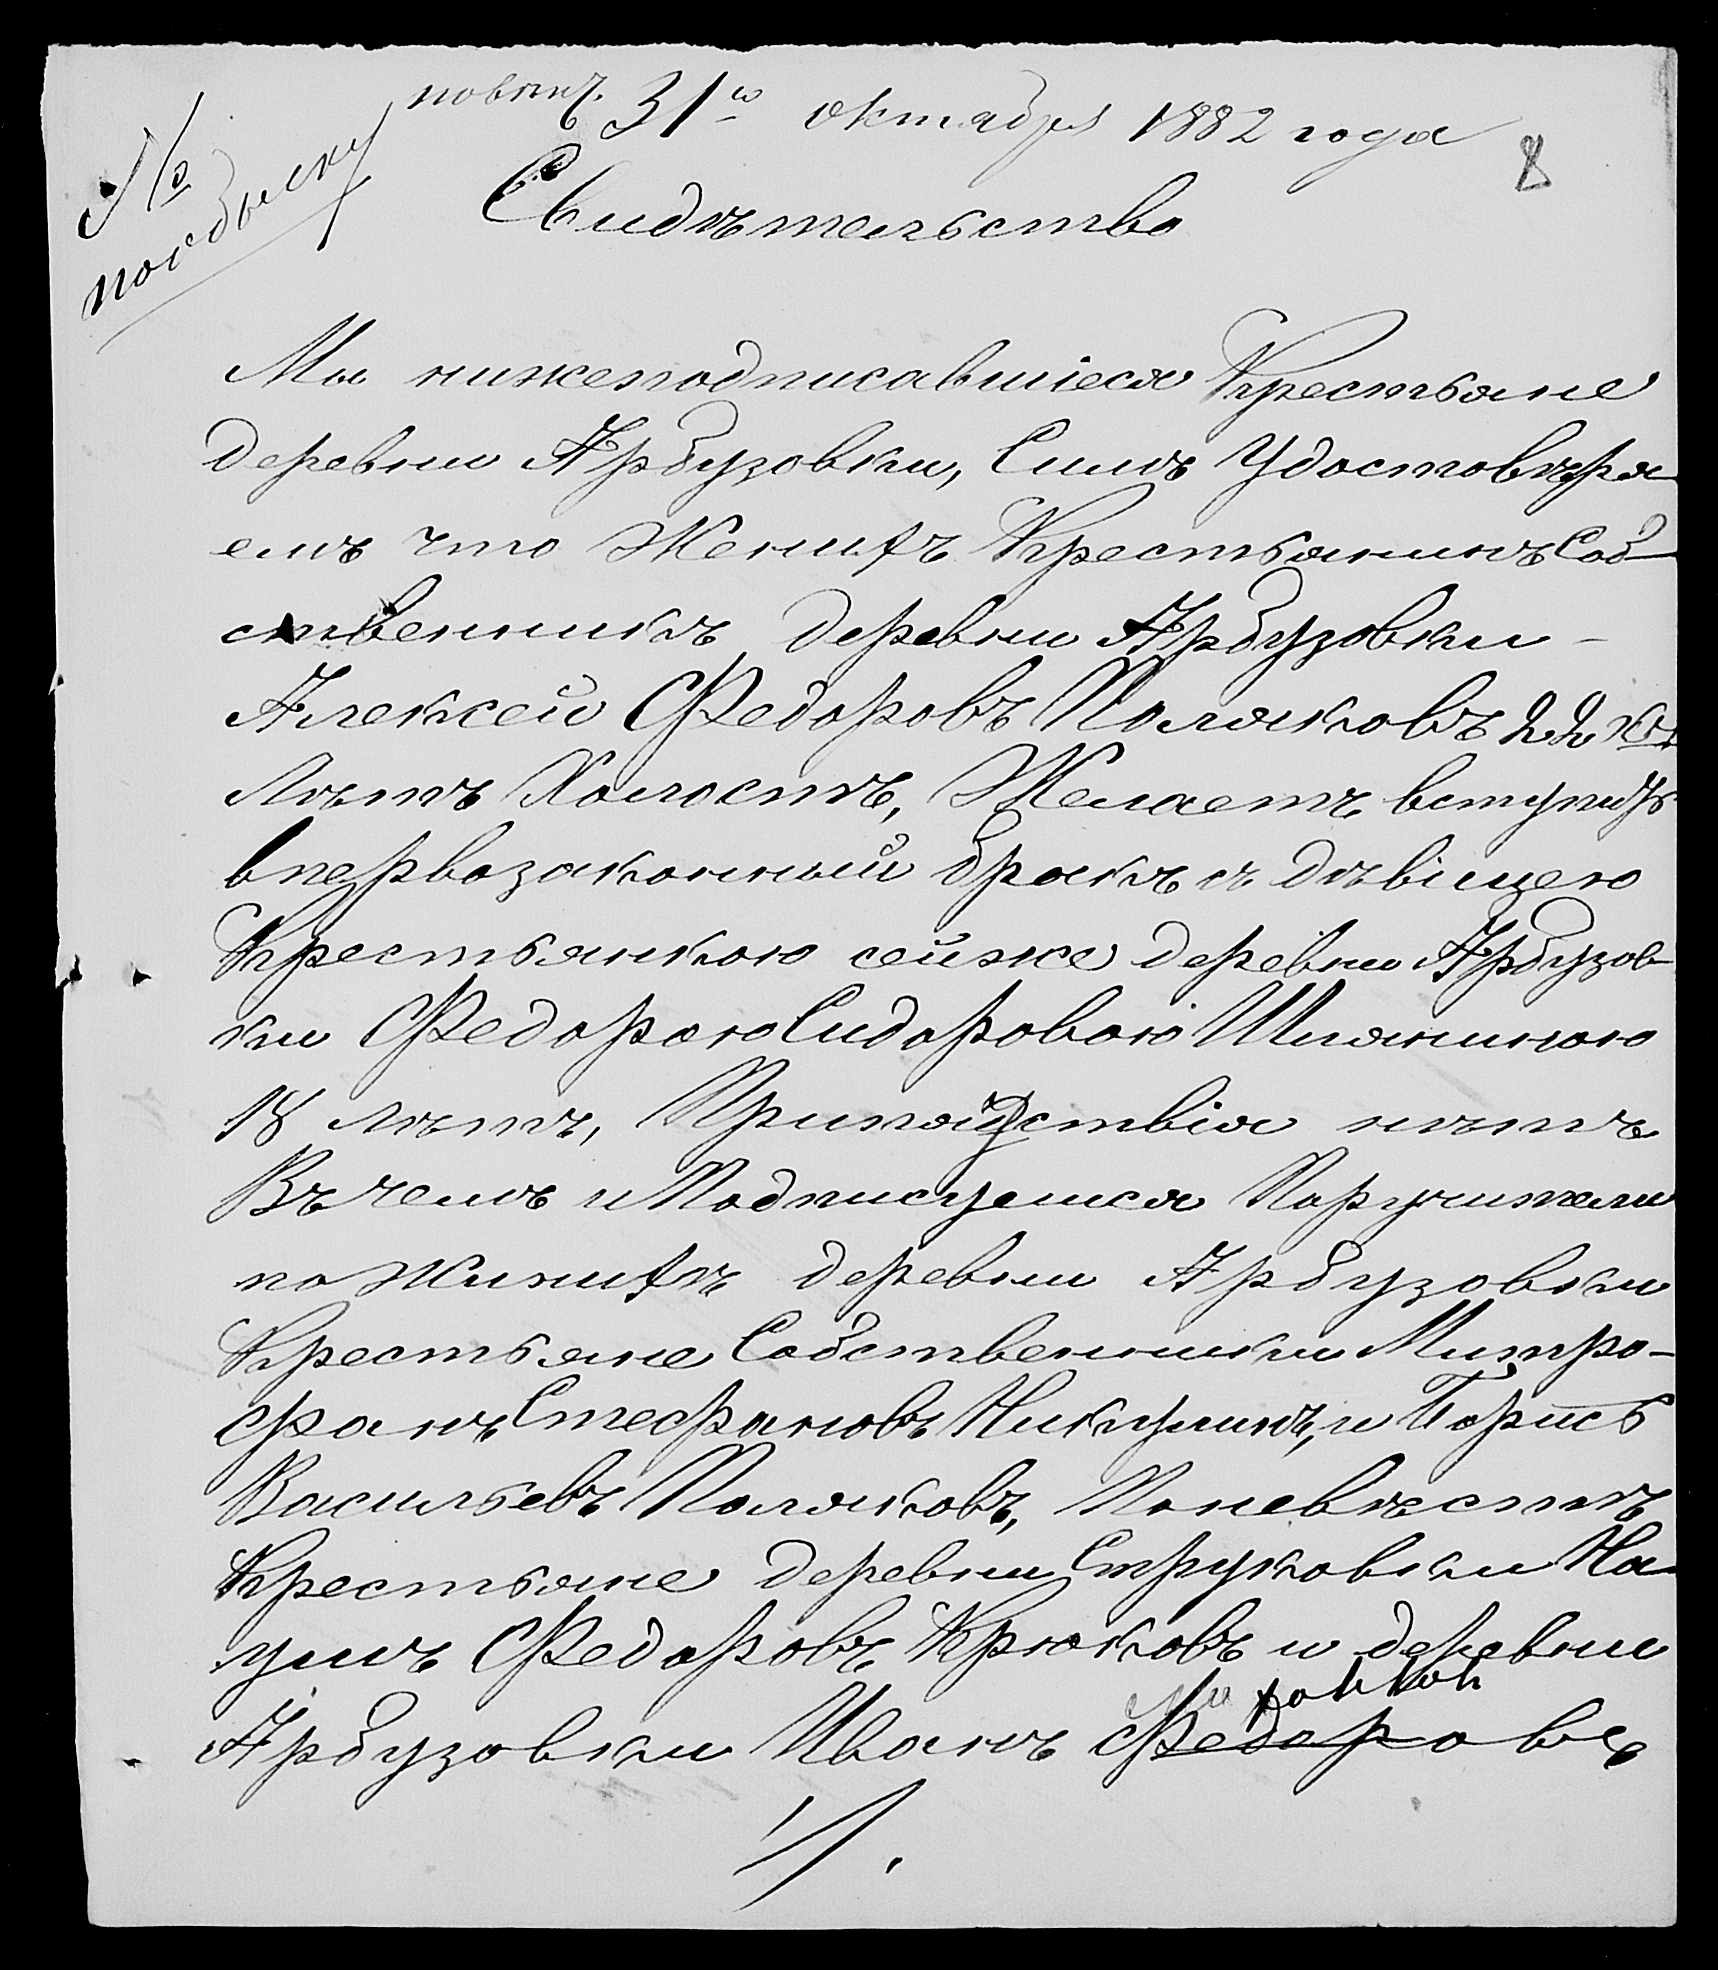 повѣнч. 31го октября 1882 года
8
№
по обыску
Свидѣтельство
Мы нижеподписавшіеся Крестьяне
деревни Арбузовки, Симъ Удостовѣря
емъ что Женихъ Крестьянинъ Соб-
ственникъ деревни Арбузовки -
Алексей Федоровъ Поляковъ 22 хъ
Лѣтъ Холостъ, Желаетъ вступить
в первозаконный бракъ съ дѣвіцею
Крестьянкою сейже деревни Арбузов-
ки Федорою Сидоровою Шляниною
18 лѣтъ, Припядствія нѣтъ
Въ чемъ и Подписуемся Поручители
по Жинихѣ деревни Арбузовки
Крестьяне Собственники Митро-
фанъ Стефановъ Никулинъ, и Борисъ
Васильевъ Поляковъ, Поневѣстѣ
Крестьяне деревни Струковки На
умъ Федоровъ Крюковъ и деревни
Арбузовки Иванъ Федоровъ